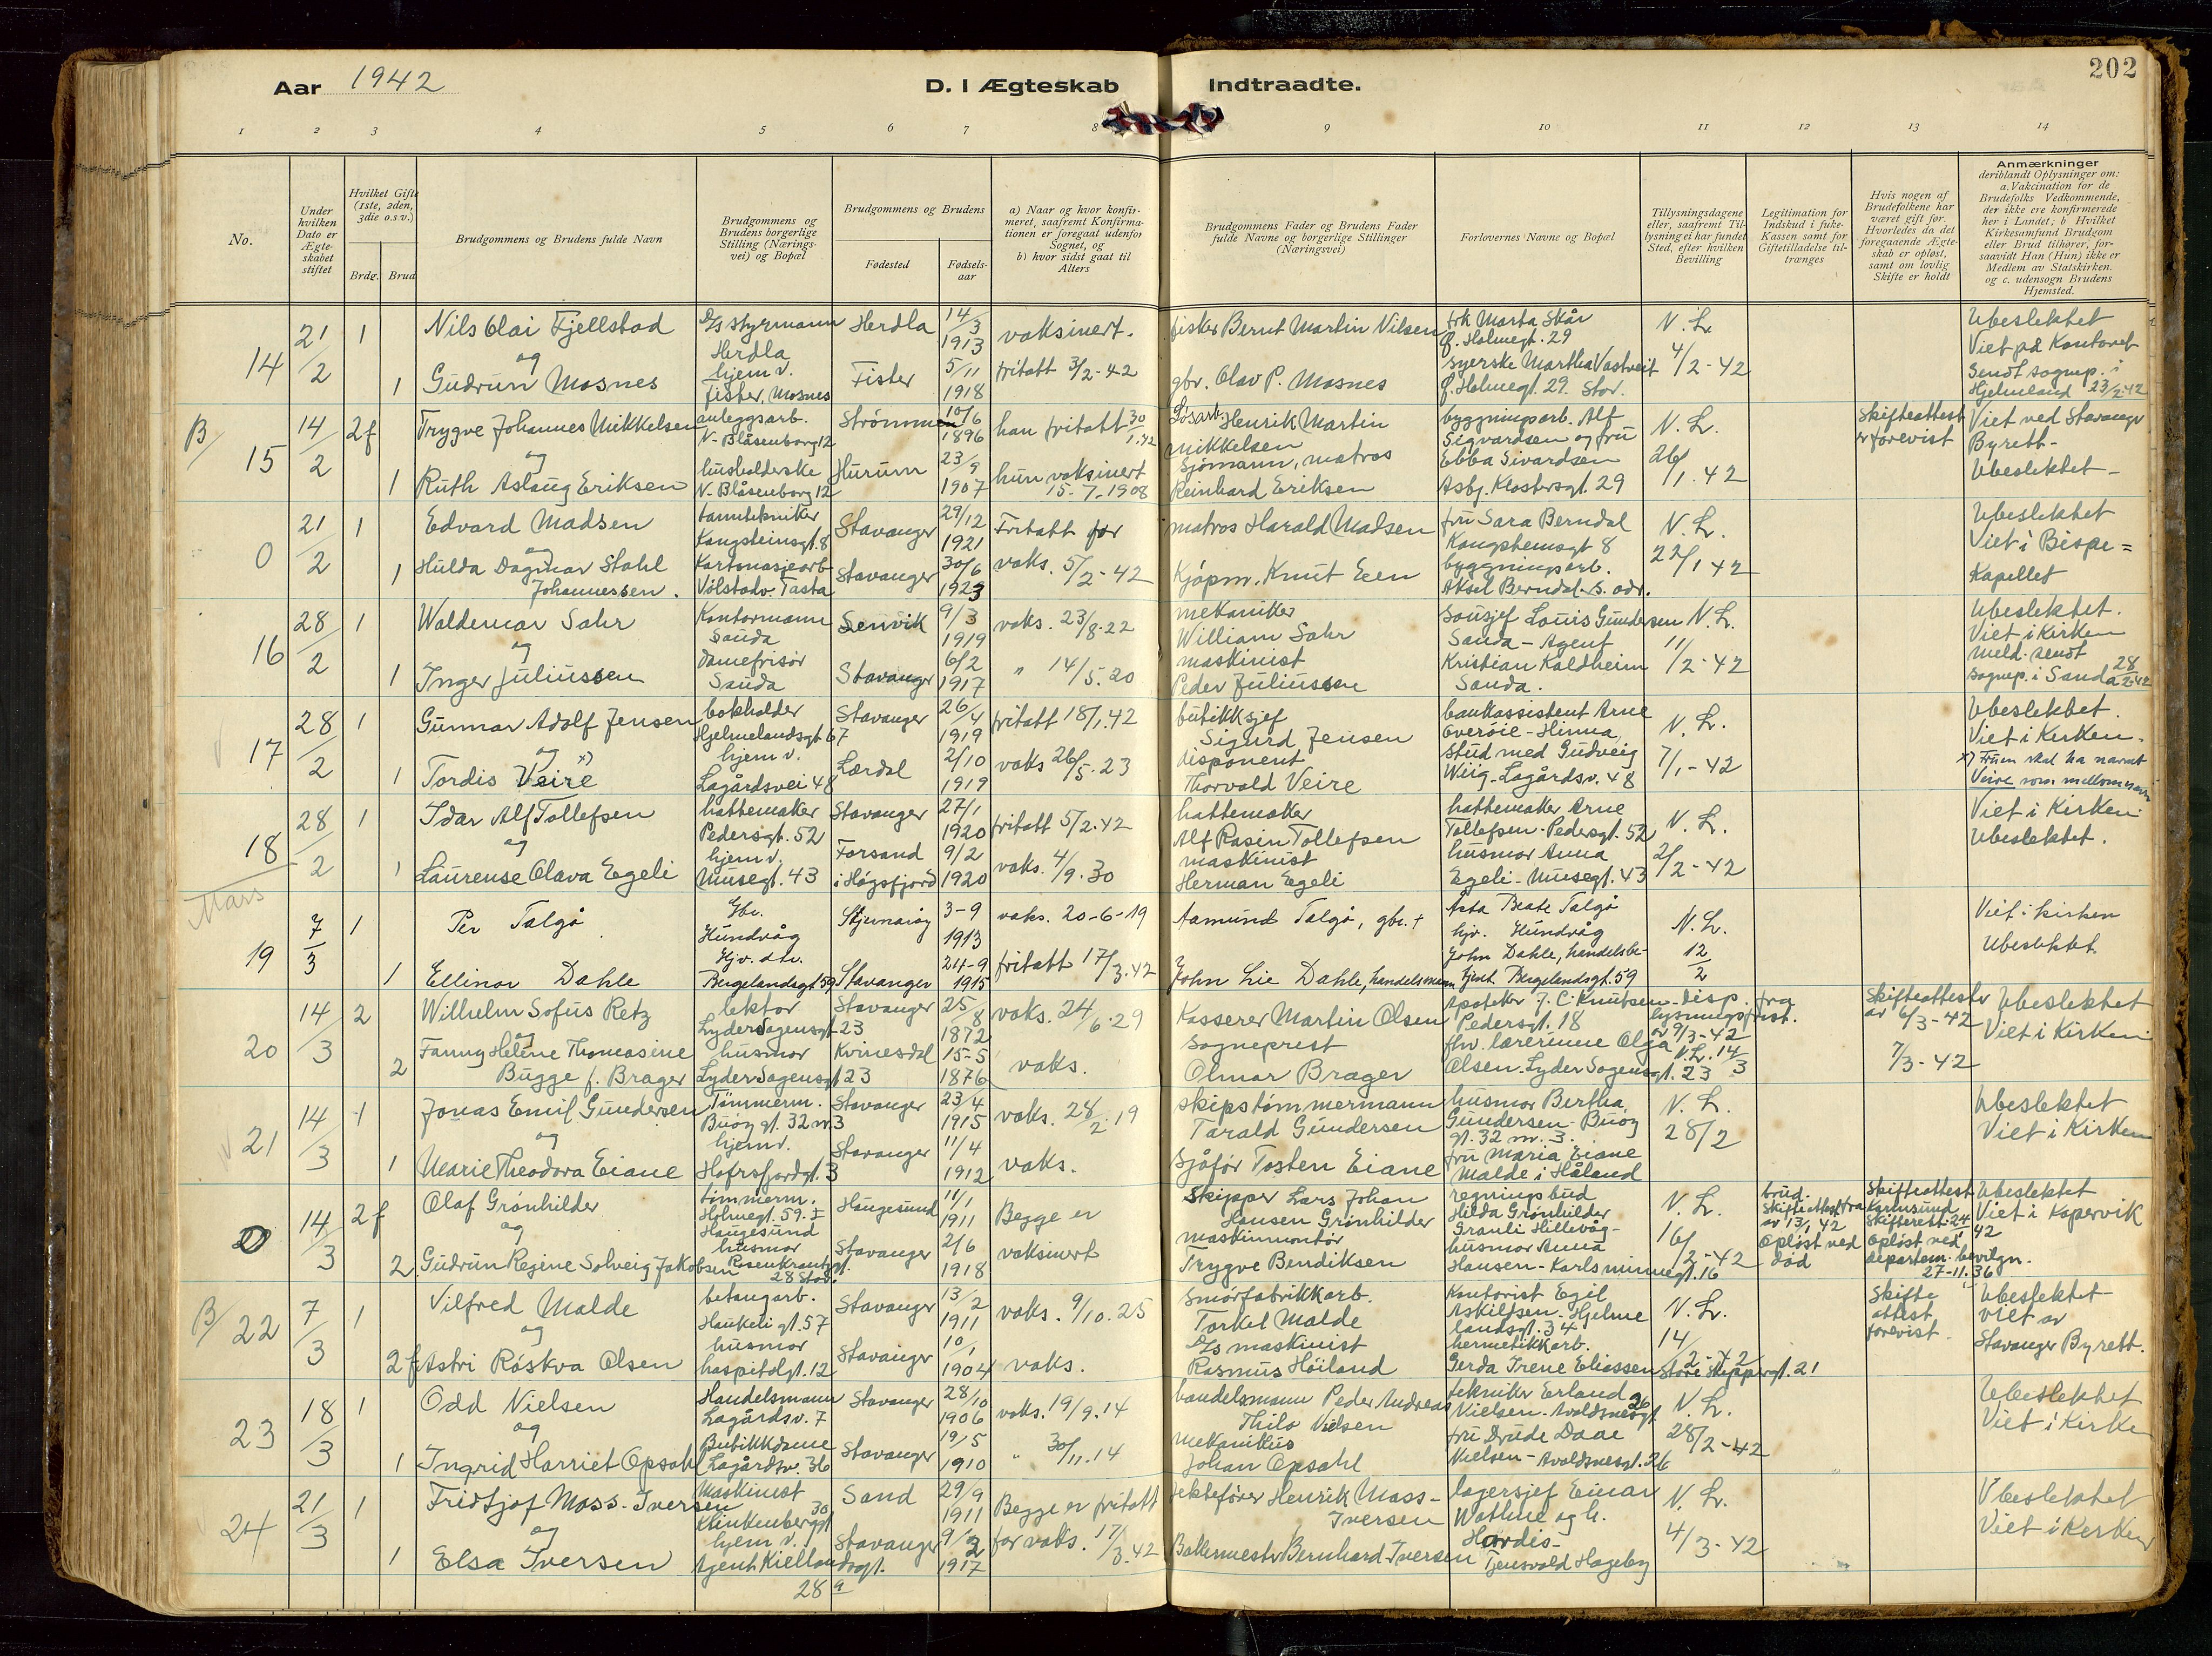 Aar 1942
D. I Ægteskab Indtraadte.
202
1 2 3 4 5 6 7 8 9 10 11 12 13 14
No.
Under hvilken Dato er Ægteskabet stiftet
Hvilket Gifte (1ste, 2den, 3die o.s.v.)
Brdg. Brud
Brudgommens og Brudens fulde Navn
Brudgommens og Brudens borgerlige Stilling (Næringsvei) og Bopæl
Brudgommens og Brudens
Fødested
Fødselsaar
a) Naar og hvor konfirmeret, saafremt Konfirmationen er foregaat udenfor Sognet, og
b) hvor sidst gaat til Alters
Brudgommens Fader og Brudens Fader fulde Navne og borgerlige Stillinger (Næringsvei)
Forlovernes Navne og Bopæl
Tillysningsdagene eller, saafremt Tillysning ei har fundet Sted, efter hvilken Bevilling
Legitimation for Indskud i Enke-Kassen samt for Giftetilladelse tiltrænges
Hvis nogen af Brudefolkene har været gift før. Hvorledes da det foregaaende Ægteskab er opløst, samt om lovlig Skifte er holdt
Anmærkninger
deriblandt Oplysninger om:
a. Vakcination for de Brudefolks Vedkommende, der ikke ere konfirmerede her i Landet; b Hvilket Kirkesamfund Brudgom eller Brud tilhører, forsaavidt Han (Hun) ikke er Medlem av Statskirken. og c. udensogn Brudens Hjemsted.
14 21/2 1 Nils Olai Fjellstad D/s styrmann Herdla Herdla 14/3 1913 vaksinert. fisker Bernt Martin Nilsen frk Marta Skår Q. Holmegt. 29 N. L. Ubeslektet Viet på Kontoret
og
1 Gudrun Mosnes hjem v. Fister, Mosnes Fister 5/11 1918 fritatt 3/2-42 gbr. Olav P. Mosnes syerske Martha Vastveit Q. Holmegt. 29. Stav. 4/2-42 Sendt sognep. i Hjelmeland 23/2-42
B/ 15 14/2 2f Trygve Johannes Mikkelsen anleggsarb. N. Blåsenborg 12 Strømmen 10/6 1896 han fritatt 30/1.42 Løsarb. Henrik Martin Mikkelsen byggningsarb. Alf Sigvardsen og fru N. L. Skifteattest er forevist Viet ved Stavanger Byrett-
og
1 Ruth Aslaug Eriksen husholderske N. Blåsenborg 12 Hurum 23/9 1907 hun vaksinert 15-7-1908 Sjømann, matros Reinhard Eriksen Ebba Sivardsen Asbj. Klostersgt. 29 26/1.42 Ubeslektet-
0 21/2 1 Edvard Madsen tanntekniker Kongsteinsgt. 8 Stavanger 29/12 1921 Fritatt for matros Harald Madsen fru Sara Berndal Kongsteinsgt 8 N. L. Ubeslektet Viet i Bispe=
og
1 Hulda Dagmar Stahl Johannessen. Kartonasjearb Vålstadv. Tasta Stavanger 30/6 1923 vaks. 5/2-42 Kjøpm. Knut Een byggningsarb. Aksel Berndal. s. adr. 22/1 42 Kapellet
16 28/2 1 Waldemar Sahr Kontormann Sauda Senvik 9/3 1919 vaks. 23/8.22 mekaniker William Sahr Sousjef Louis Gundersen N. L. Ubeslektet. Viet i Kirken
og
1 Inger Juliussen Damefrisør Sauda Stavanger 6/2 1917 " 14/5.20 maskinist Peder Juliussen Sauda - Agent Kristian Kaldheim Sauda. 11/2-42 Meld. sendt sognep. i Sauda 28/2-42
17 28/2 1 Gunnar Adolf Jensen bokholder Hjelmelandsgt 67 Stavanger 26/4 1919 fritatt 18/1.42 butikksjef Sigurd Jensen bankassistent Arne Overøie-Hinna N. L. Ubeslektet. Viet i Kirken.
og x)
1 Tordis Veire hjem v. Lagårdsvei 48 Lærdal 2/10 1919 vaks 26/5.23 disponent Thorvald Veire stud med Gudveig Wiig-Lagårdsv. 48 7/1-42 x) Fruen skal ha navnet Veire som mellomnavn
18 28/2 1 Idar Alf Tollefsen hattemaker Pedersgt. 52 Stavanger 27/1 1920 fritatt 5/2.42 hattemaker Alf Rasin Tollefsen hattemaker Arne Tollefsen-Pedersgt. 52 N. L. Viet i Kirken
og
1 Laurense Olava Egeli hjem v. Musegt. 43 Forsand i Høgsfjord 9/2 1920 vaks. 4/9.30 maskinist Herman Egeli husmor Anna Egeli-Musegt. 43 2/2-42 Ubeslektet.
Mars
19 7/3 1 Per Talgø Gbr. Hundvåg Stjernarøy 3-9 1913 vaks. 20-6-19 Aamund Talgø, gbr. + Åsta Beate Talgø hjv. Hundvåg N. L. Viet i kirken
1 Ellinor Dahle Hjv. dtr. Bergelandsgt 59 Stavanger 24-9 1915 fritatt 17/3.42 John Lie Dahle, handelsmann John Dahle, handelsbetjent Bergelandsgt. 59 12/2 Ubeslektet.
20 14/3 2 Wilhelm Sofus Retz lektor Lyder Sagensgt 23 Stavanger 25/8 1872 vaks. 24/6.29 Kasserer Martin Olsen Apoteker J. C. Knutsen Pedersgt. 18 disp. fra lysningsfrist. av 9/3-42 Skifteattester av 6/3-42 Ubeslektet Viet i Kirken
og
2 Fanny Helene Thomasine Bugge f. Brager husmor Lyder Sagensgt 23 Kvinesdal 15-5 1876 vaks. Sogneprest Olmar Brager fhv. lærerinne Olga Olsen. Lyder Sagensgt. 23 N. L. 14/3 7/3-42
21 14/3 1 Jonas Emil Gundersen Tømmerm. Buøy gt. 32 nr. 3 Stavanger 23/4 1915 vaks. 28/2.19 skipstømmermann Tarald Gundersen husmor Bertha Gundersen-Buøy gt. 32 nr. 3. N. L. Ubeslektet
og
1 Marie Theodora Eiane hjem v. Hafrsfjordgt. 3 Stavanger 11/4 1912 vaks. Sjåfør Tosten Eiane fru Maria Eiane Malde i Håland 28/2 Viet i Kirken
0 14/3 2f Olaf Grønhilder tømmerm. Holmegt. 59. I Haugesund Haugesund 11/1 1911 Begge er Skipper Lars Johan Hansen Grønhilder regningsbud Hilda Grønhilder Grauli Hillevåg- N. L. brud. Skifteattest fra av 13/1 42 Skifteattest Karmsund Skifterett. 24/ 42 Ubeslektet Viet i Kopervik
og
2 Gudrun Regine Solveig Jakobsen husmor Rosenkrantzgt. 28 Stav. Stavanger 2/6 1918 vaksinert maskinmontør Trygve Bendiksen husmor Anna Hansen-Karlsminnegt. 16 16/2-42 Opløst ved død Opløst ved departem. bevilgn. 27-11.36
B/ 22 7/3 1 Vilfred Malde betongarb. Haukeligt. 57 Stavanger 13/2 1911 vaks. 9/10.25 Smørfabrikkarb. Torkel Malde Kontorist Egil Askildsen. Hjelmelandsgt. 34 N. L. Skifteattest forevist. Ubeslektet- viet av
og
2f Astri Röskva Olsen husmor haspitalgt. 12 Stavanger 10/1 1904 vaks. D/s maskinist Rasmus Høiland hermetikkarb. Gerda Irene Eliassen Store Skippergt. 21 14/2-42 Stavanger Byrett.
23 18/3 1 Odd Nielsen Handelsmann Lagårdsv. 7 Stavanger 28/10 1906 vaks. 19/9.14 handelsmann Peder Andreas Thilo Nielsen tekniker Erland Nielsen-Avaldsnesgt. 26 N. L. Ubeslektet
og
1 Ingrid Harriet Opsahl Butikkdame Lagårdsv. 36 Stavanger 19/5 1910 " 30/11.14 Mekanikus Johan Opsahl fru Drude Daae Nielsen-Avaldsnesgt. 26 28/2-42 Viet i Kirke
24 21/3 1 Fridtjof Moss-Iversen Maskinist Klinkenberggt 30 Sand 29/9 1911 Begge er fritatt Jektefører Henrik Moss-Iversen lagersjef Einar Wathne og h. N. L. Ubeslektet
og
1 Elsa Iversen hjem v. Agent Kiellandsgt. 28a Stavanger 9/2 1917 for vaks. 17/3.42 Bakermester Bernhard Iversen Hardis- Tjensvold Hageby 4/3-42 Viet i Kirken